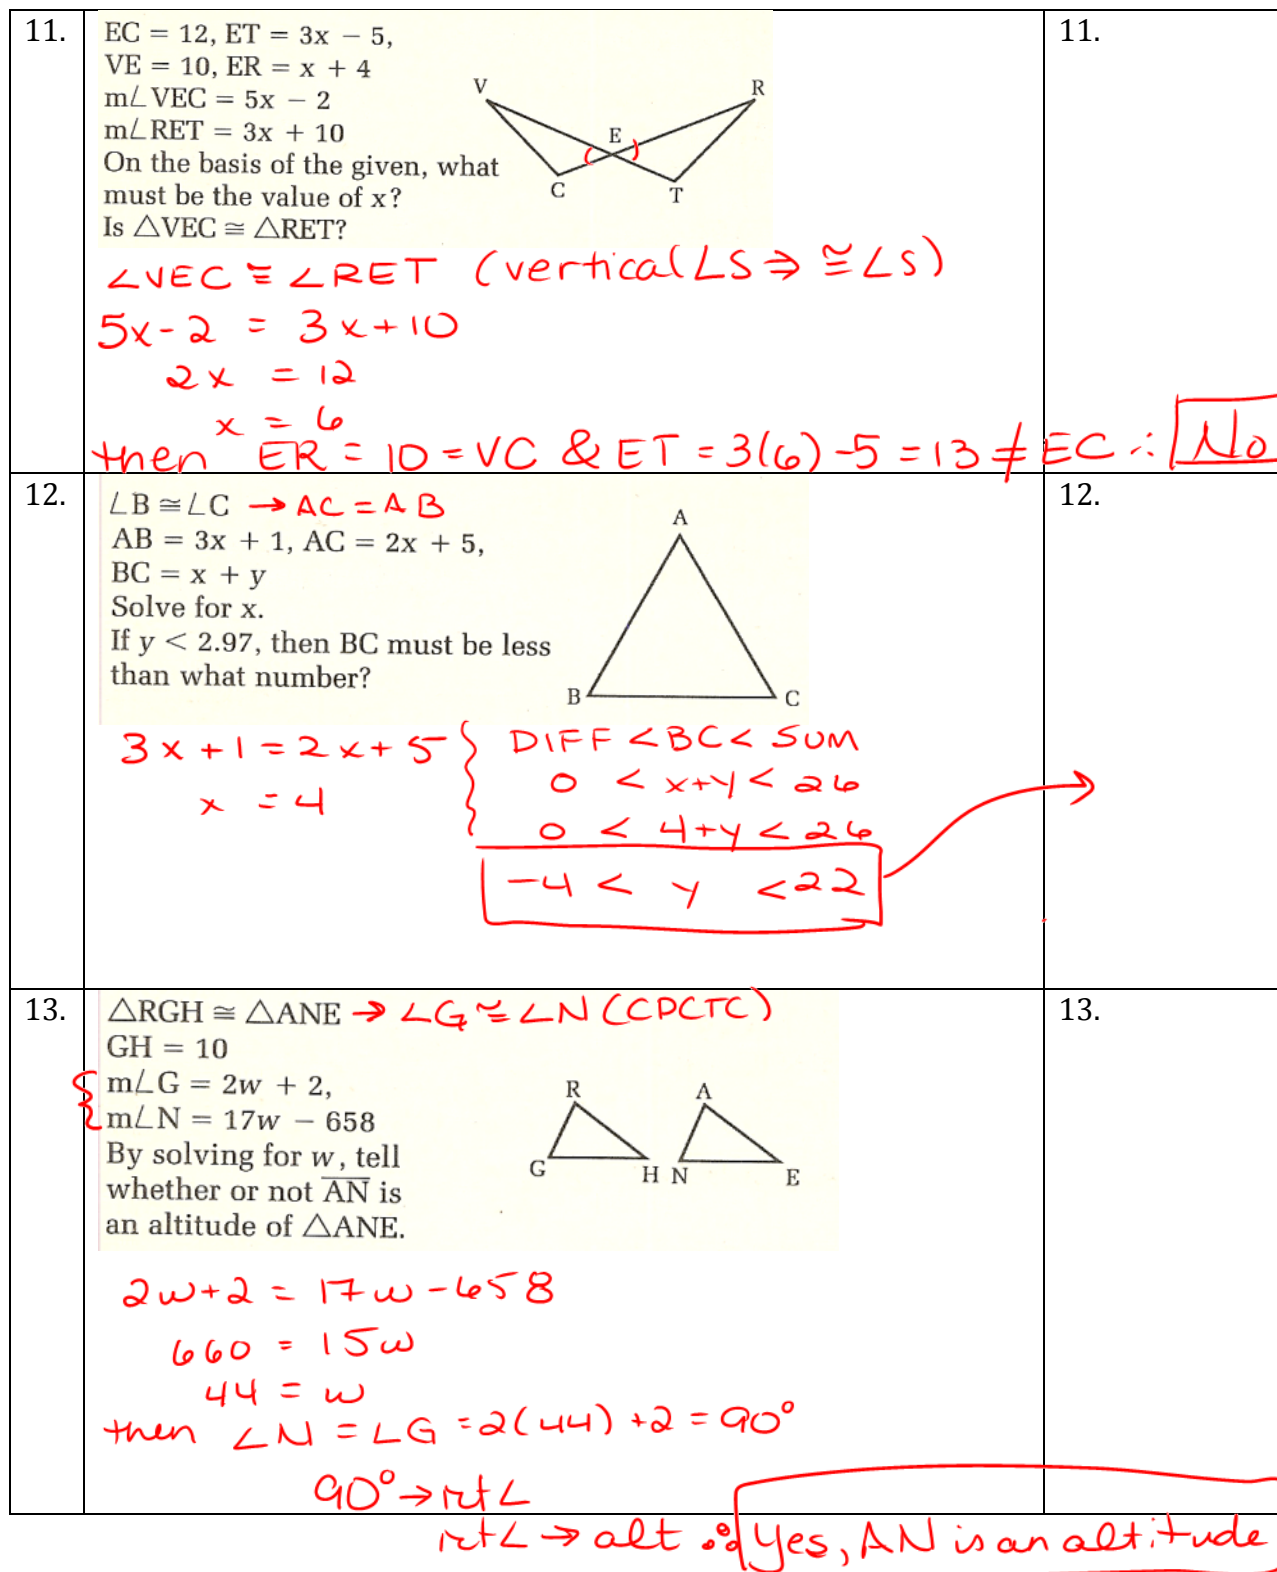 11.
EC = 12, ET = 3x − 5,
VE = 10, ER = x + 4
m∠VEC = 5x − 2
m∠RET = 3x + 10
On the basis of the given, what
must be the value of x?
Is △VEC ≅ △RET?
V
R
E
C
T
11.
∠VEC ≅ ∠RET (vertical ∠S ⇒ ≅ ∠S)
5x - 2 = 3x + 10
2x = 12
x = 6
then ER = 10 = VC & ET = 3(6) - 5 = 13 ≠ EC ∴ No
12.
∠B ≅ ∠C → AC = AB
AB = 3x + 1, AC = 2x + 5,
BC = x + y
Solve for x.
If y < 2.97, then BC must be less
than what number?
A
B
C
12.
3x + 1 = 2x + 5
x = 4
DIFF < BC < SUM
0 < x+y < 26
0 < 4+y < 26
-4 < y < 22
13.
△RGH ≅ △ANE → ∠G ≅ ∠N (CPCTC)
GH = 10
m∠G = 2w + 2,
m∠N = 17w − 658
By solving for w, tell
whether or not A̅N̅ is
an altitude of △ANE.
R
A
G
H
N
E
13.
2w+2 = 17w - 658
660 = 15w
44 = w
then ∠N = ∠G = 2(44) + 2 = 90°
90° → rt ∠
rt ∠ → alt ∴ Yes, AN is an altitude